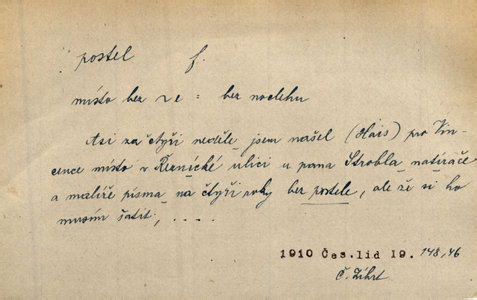 postel f.
místo bez ~e = bez noclehu
Asi za čtyři neděle jsem našel (Hais) pro Vin-
cence místo v Řeznické ulici u pana Strobla natěrače
a malíře písma na čtyři roky bez postele, ale že si ho
musím šatit; . . . .
1910 Čes. lid 19. 148, 46
Č. Zíbrt